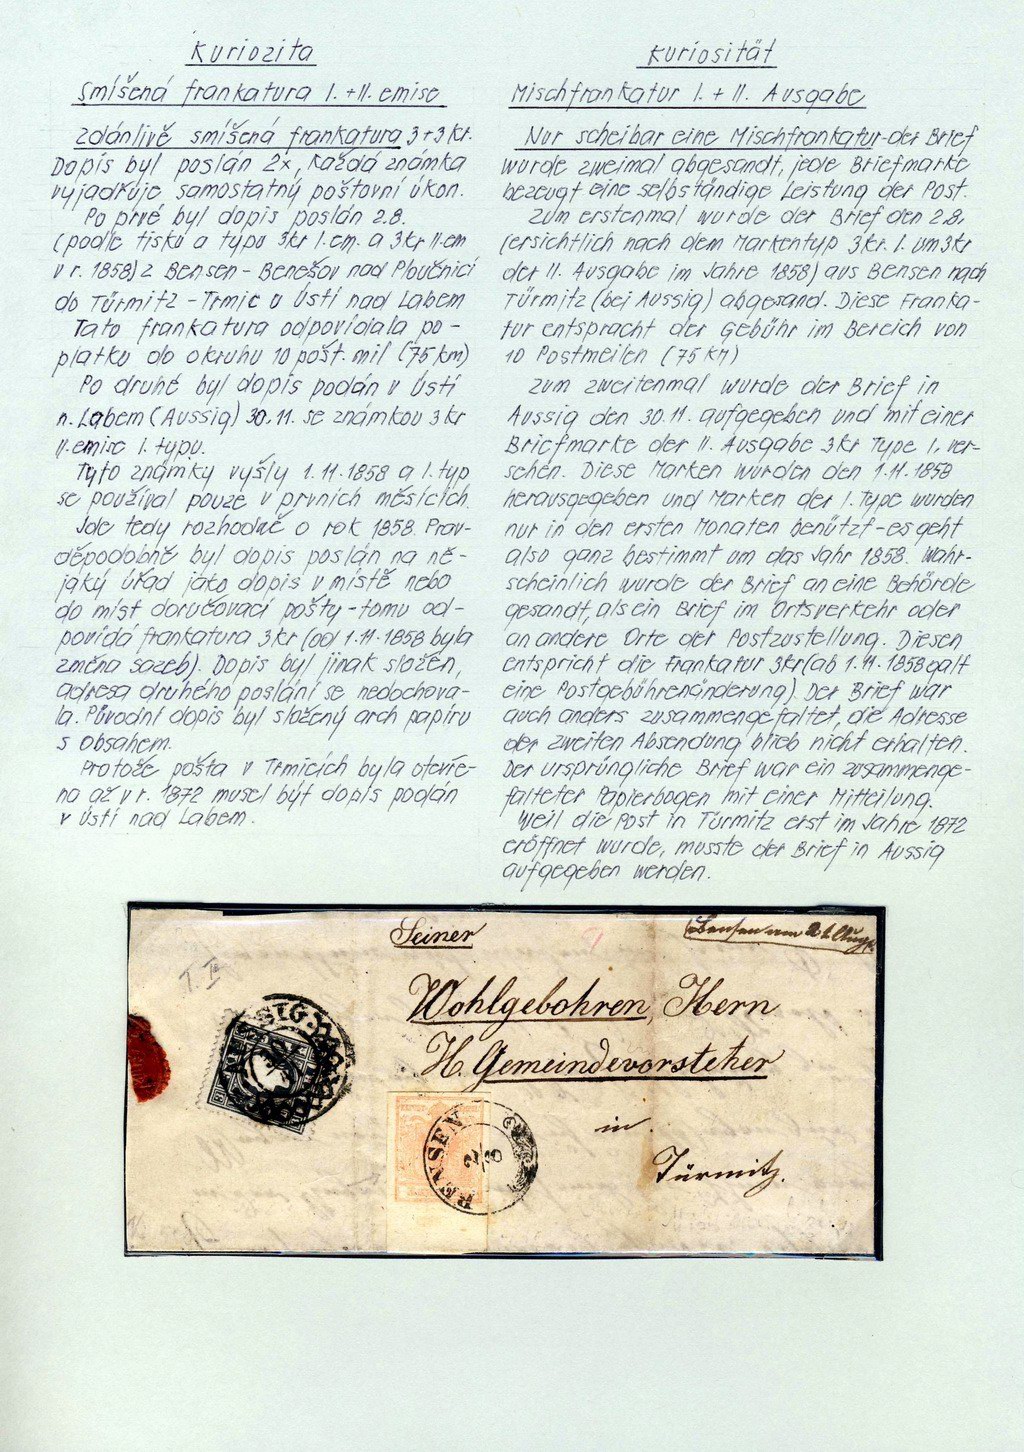 Kuriozita
Smíšená frankatura I. + II. emise
Zdánlivě smíšená frankatura 3+3 kr.
Dopis byl poslán 2x, každá známka
vyjadřuje samostatný poštovní úkon.
Po prvé byl dopis poslán 2.8.
(podle tisku a typu 3kr I. em. a 3kr II. em
v r. 1858) z Bensen - Benešov nad Ploučnicí
do Türmitz - Trmic u Ústí nad Labem
Tato frankatura odpovídala po-
platku do okruhu 10 pošt. mil (75 km)
Po druhé byl dopis podán v Ústí
n. Labem (Aussig) 30.11. se známkou 3 kr
II. emise I. typu.
Tyto známky vyšly 1.11.1858 a I. typ
se používal pouze v prvních měsících.
Jde tedy rozhodně o rok 1858. Prav-
děpodobně byl dopis poslán na ně-
jaký úřad jako dopis v místě nebo
do míst doručovací pošty - tomu od-
povídá frankatura 3 kr (od 1.11.1858 byla
změna sazeb). Dopis byl jinak složen,
adresa druhého poslání se nedochova-
la. Původní dopis byl složený arch papíru
s obsahem.
Protože pošta v Trmicích byla otevře-
na až v r. 1872 musel být dopis podán
v Ústí nad Labem.
Kuriosität
Mischfrankatur I. + II. Ausgabe
Nur scheibar eine Mischfrankatur - der Brief
wurde zweimal abgesandt, jede Briefmarke
bezeugt eine selbständige Leistung der Post.
Zum erstenmal wurde der Brief den 2.8.
(ersichtlich nach dem Markentyp 3kr. I. um 3kr
der II. Ausgabe im Jahre 1858) aus Bensen nach
Türmitz (bei Aussig) abgesand. Diese Franka-
tur entspracht der Gebühr im Bereich von
10 Postmeilen (75 km)
Zum zweitenmal wurde der Brief in
Aussig den 30.11. aufgegeben und mit einer
Briefmarke der II. Ausgabe 3kr Type I, ver-
sehen. Diese Marken wurden den 1.11.1858
herausgegeben und Marken der I. Type wurden
nur in den ersten Monaten benützt - es geht
also ganz bestimmt um das Jahr 1858. Wahr-
scheinlich wurde der Brief an eine Behörde
gesandt, als ein Brief im Ortsverkehr oder
an andere Orte der Postzustellung. Diesen
entspricht die Frankatur 3kr (ab 1.11.1858 galt
eine Postgebührenänderung). Der Brief war
auch anders zusammengefaltet, die Adresse
der zweiten Absendung blieb nicht erhalten.
Der ursprüngliche Brief war ein zusammenge-
falteter Papierbogen mit einer Mitteilung.
Weil die Post in Türmitz erst im Jahre 1872
eröffnet wurde, musste der Brief in Aussig
aufgegeben werden.
Seiner
Wohlgebohren, Hern
H. Gemeindevorsteher
in
Türmitz.
BENSEN
2/8